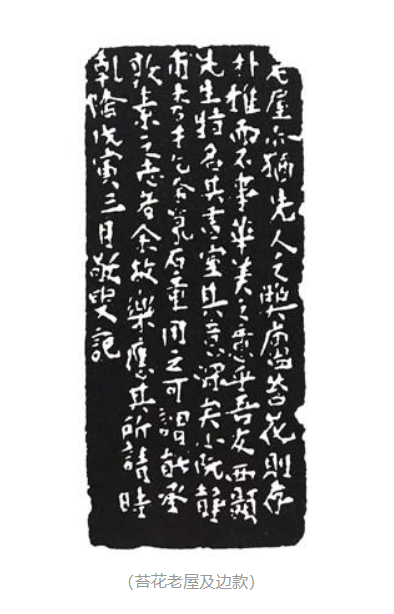 老屋亦猶先人之弊廬苔花則存
朴雅而不事華美之意乎吾友西顥
先生特名其書室其意深矣小阮
甫 石重用之可謂能承
敦素之志者余故樂應其所請時
乾隆戊寅三月敬叟記
(苔花老屋及边款)